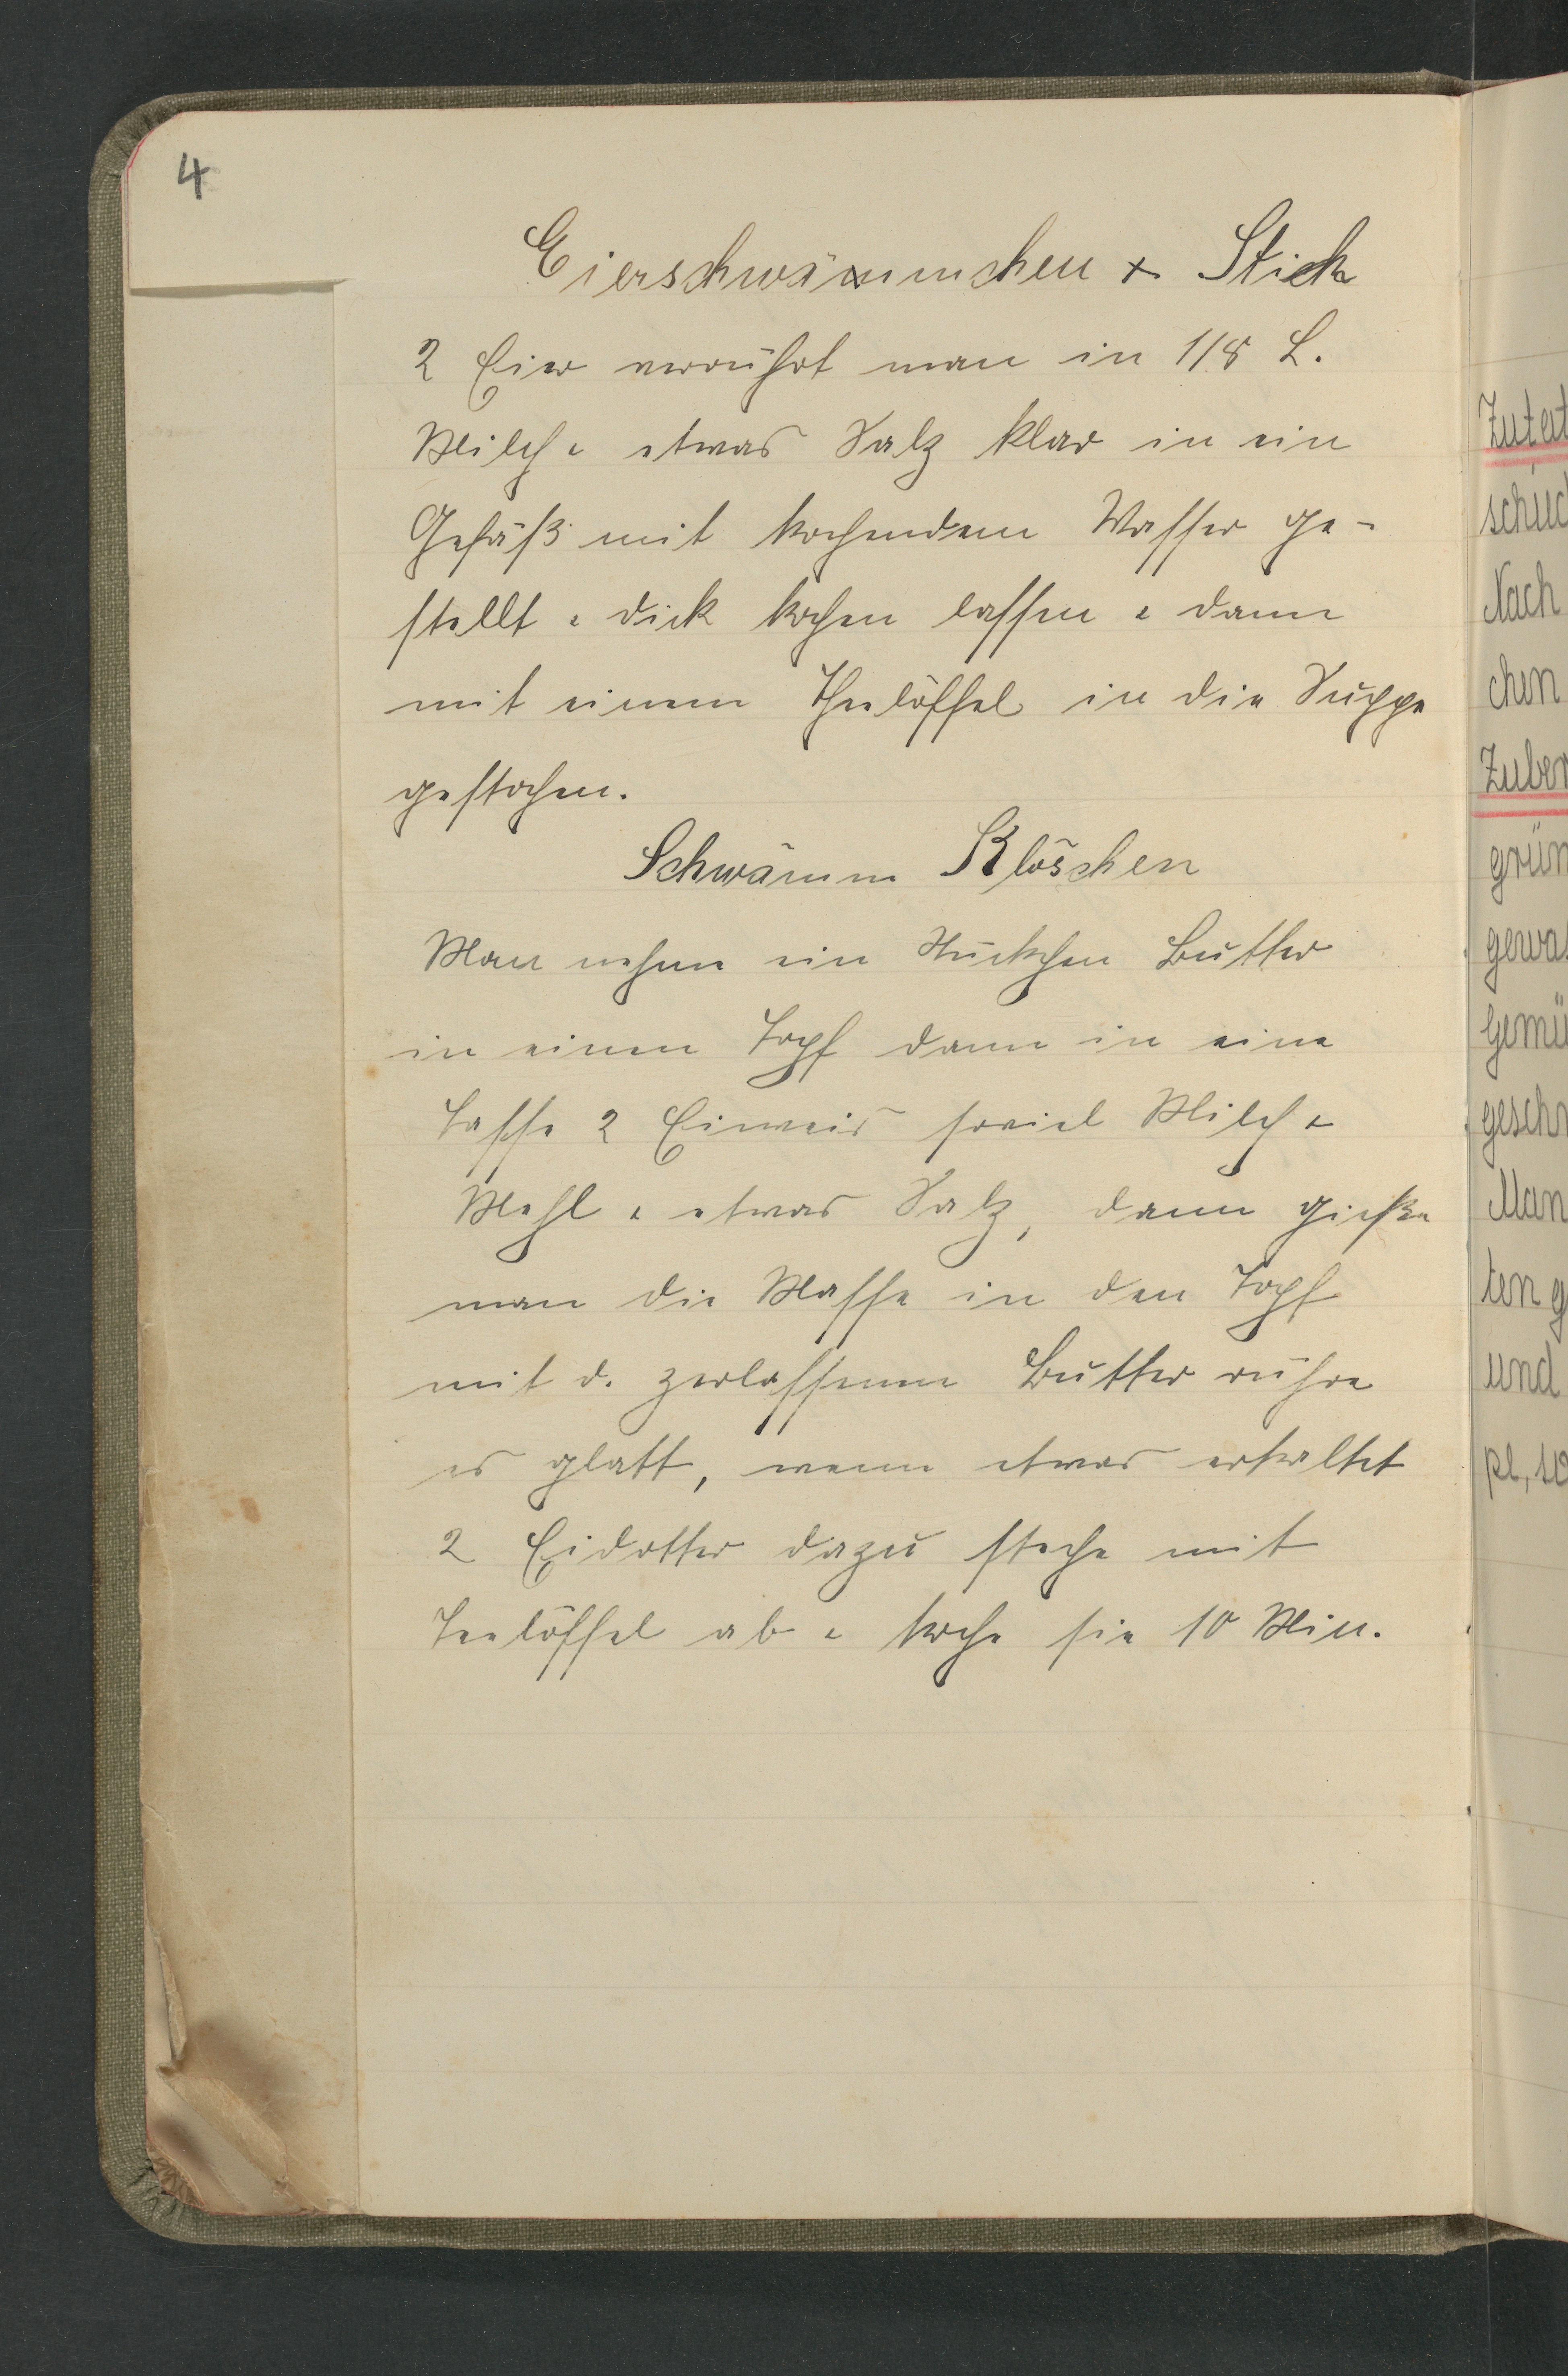 4
Eierschwämmchen x Stich
2 Eier verrührt man in 1/8 L.
Milch u etwas Salz klar in ein
Gefäß mit kochendem Wasser ge-
stellt u dick kochen lassen u dann
mit einem Theelöffel in die Suppe
gestochen.
Schwämm Klöschen
Man nehme ein Stückchen Butter
in einen Topf dann in eine
Tasse 2 Eiweis soviel Milch u
Mehl u etwas Salz, dann gieße
man die Masse in den Topf
mit d. zerlassenen Butter rühre
es glatt, wenn etwas erkaltet
2 Eidotter dazu steche mit
Teelöffel ab u koche sie 10 Min.
Zutat
schüc
Nach
chen
Zuber
grün
gewas
Gemü
geschn
Man
ten g
und